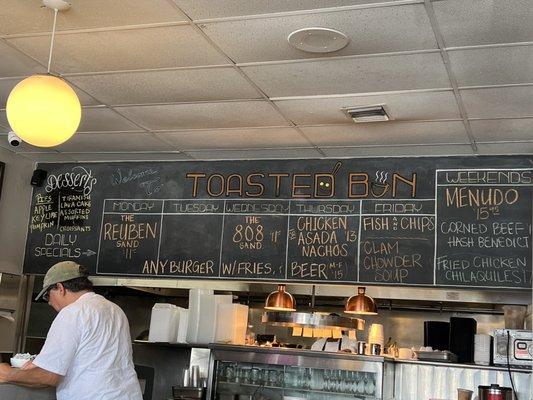 Desserts
Pies
APPLE
KEY LIME
PUMPKIN
TIRAMISU
LAVA CAKE
ASSORTED
MUFFINS
&
CROISSANTS
DAILY
SPECIALS
Welcome
TOASTED BUN
MONDAY
THE
REUBEN
SAND
TUESDAY
ANY BURGER W/FRIES,
BEER
WEDNESDAY
THE
808
SAND
THURSDAY
CHICKEN
ASADA
NACHOS
FRIDAY
FISH AND CHIPS
CLAM
CHOWDER
SOUP
WEEKENDS
MENUDO
CORNED BEEF
HASH BENEDICT
FRIED CHICKEN
CHILAQUILES